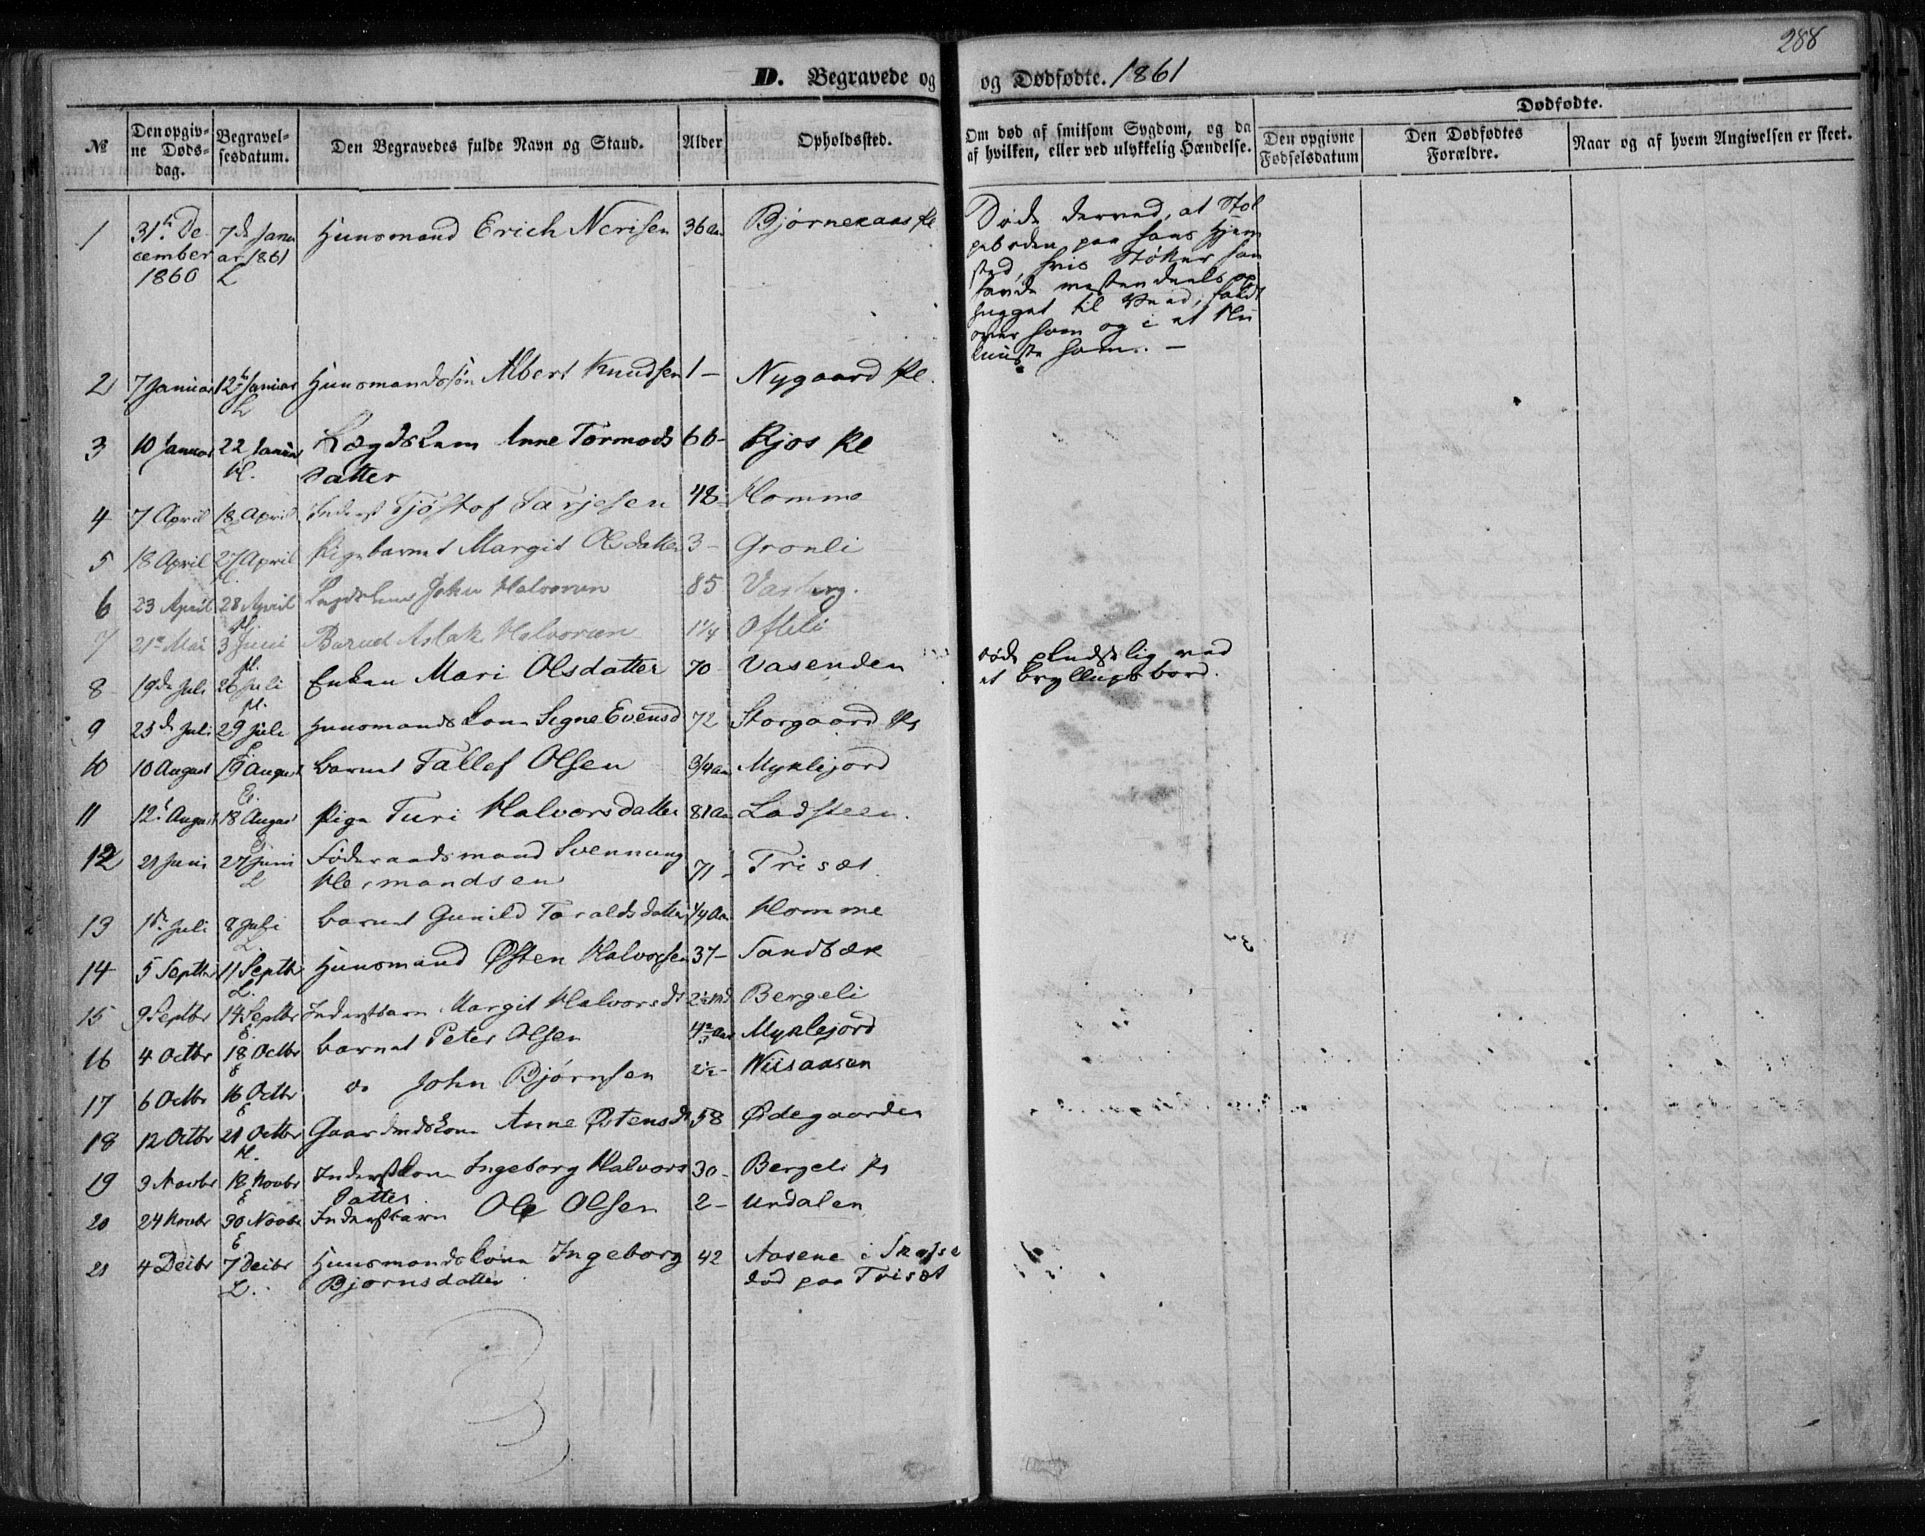 288
D. Begravede og
og Dødfødte. 1861
№
Den opgivne Døds-dag.
Begravelsesdatum.
Den Begravedes fulde Navn og Stand.
Alder
Opholdssted.
Om død af smitsom Sygdom, og da af hvilken, eller ved ulykkelig Hændelse.
Dødfødte.
Den opgivne Fødselsdatum
Den Dødfødtes Forældre.
Naar og af hvem Angivelsen er skeet.
1 31te December 1860 7de Januar 1861 L Huusmand Erich Nerisen 36 Aar Bjørnekaas Pl
Døde derved, at Stol
peboden paa hans Hjem
sted, hvis Støtker han
havde mestendeels op
hugget til Veed, faldt
over ham og
2 7 Januar 12te Januar L Huusmandssøn Albert Knudsen 1 - Nygaard Pl.
3 10 Januar 22 Januar H. Lægdslem Anne Tormods 66 - Kjos Pl
datter
4 7 April 18 April Inderst Tjøstof Tarjesen 48 - Homme
5 18 April 27 April H. Pigebarnet Margit Olsdatter 3 - Grønli
6 23 April 28 April H. Lægdslem John Halvorsen 85 Vasberg.
7 21e Mai 3 Juni H. Barnet Aslak Halvorsen 1¼ Ofteli
8 19de Juli 26 Juli H. Enken Mari Olsdatter 70 - Vasenden døde pludselig ved
et Bryllupsbord.
9 25de Juli 29 Juli E. Huusmandskone Signe Evensd 72 Storgaard Pl
10 10 August 19 August E. Barnet Tallef Olsen 3/4 Aar Myklejord
11 12te August 18 August E Pige Turi Halvorsdatter 81 Aar Ladsteen.
12 21 Juni 27 Juni L Føderaadsmand Svennung 71 - Trisæt.
Hermandsen
13 1ste Juli 8 Juli L Barnet Gunild Taraldsdatter 1/4 Aar Homme
14 5 Septbr 11 Septbr L. Huusmand Østen Halvorsen 37 - Sandbæk
15 9 Septbr 14 Septbr E Inderstbarn Margit Halvorsdt 2½ Md Bergeli
16 4 Octbr 18 Octbr E Barnet Peter Olsen 4⅔ Aar Myklejord
17 6 Octbr 16 Octbr E do John Bjørnsen 2½ - Nisaasen
18 12 Octbr 21 Octbr H. Gaardmdskone Anne Østensdt 58 Ødegaarden
19 3 Novbr 18 Novbr E Inderstkone Ingeborg Halvors 30 - Bergeli Pl
datter
20 24 Novbr 30 Novbr E Inderstbarn Ole Olsen 2 - Urdalen
21 4 Decbr 7 Decbr L. Huusmandskone Ingeborg 42 Aasene i Skafse
Bjørnsdatter død paa Trisæt